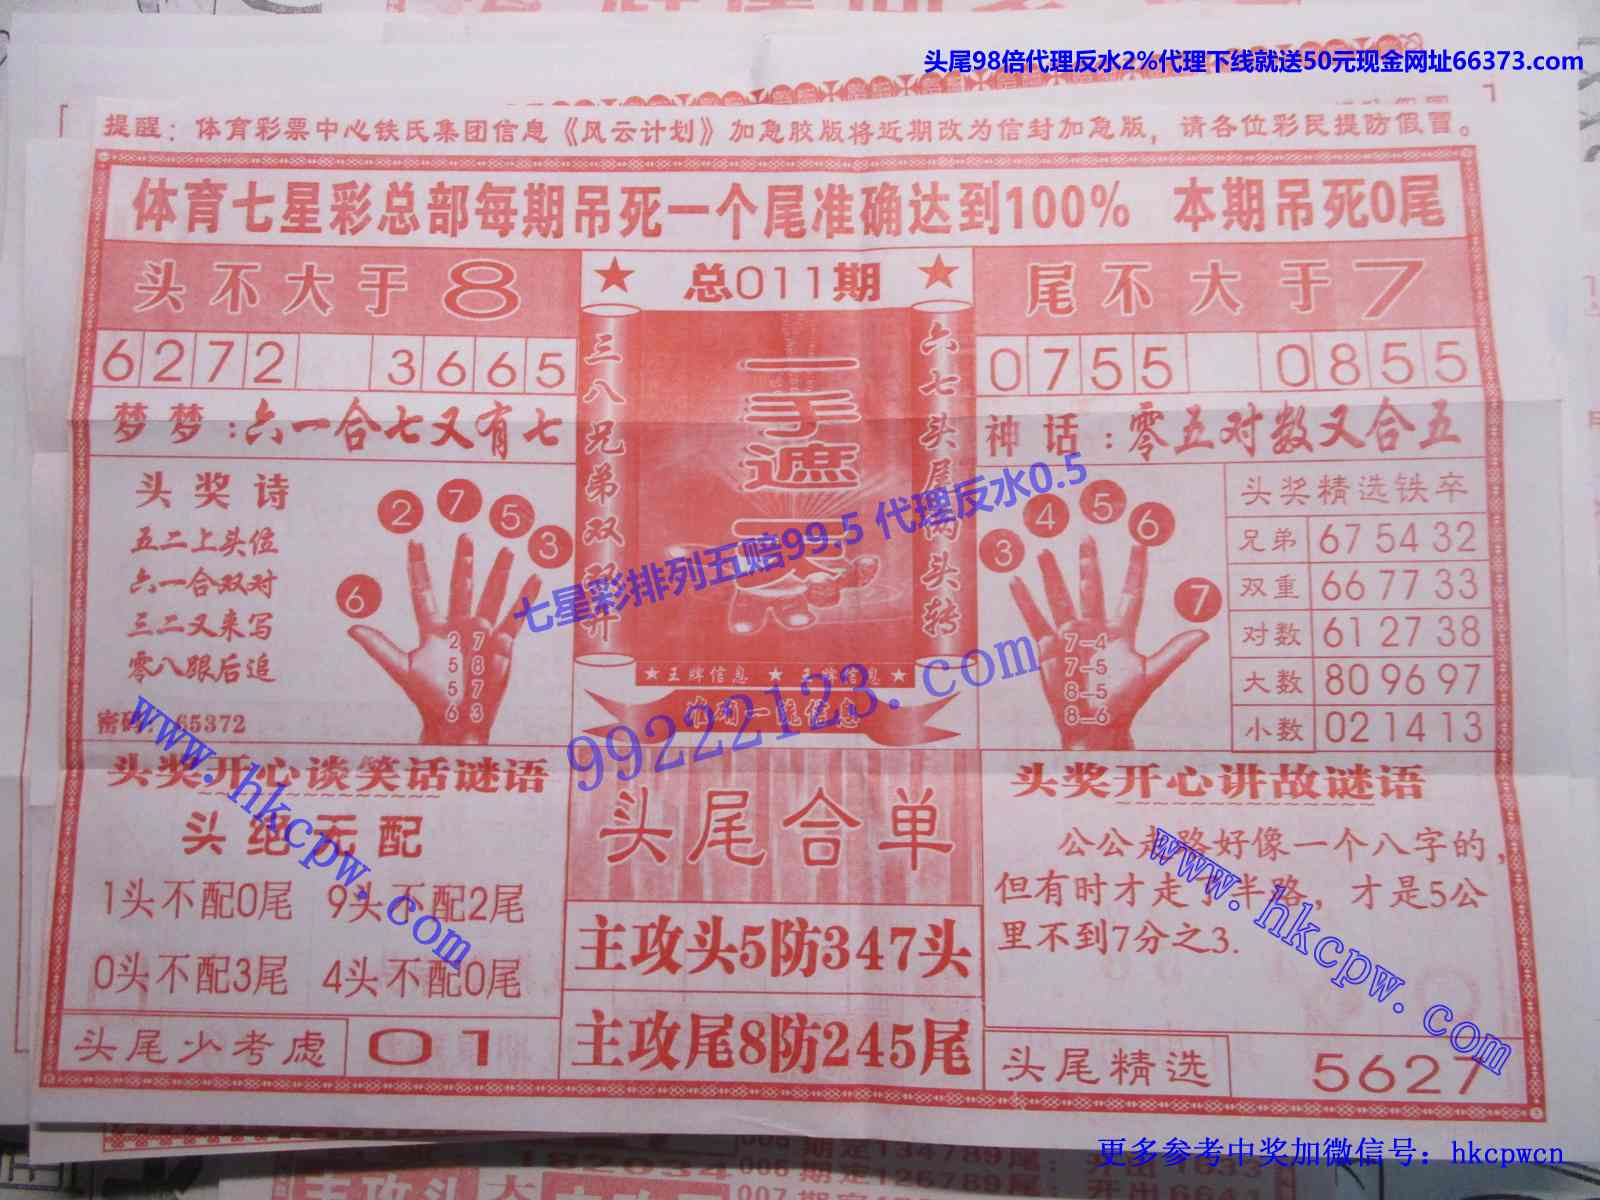 头尾98倍代理反水2%代理下线就送50元现金网址66373.com
提醒：体育彩票中心铁氏集团信息《风云计划》加急胶版将近期改为信封加急版，请各位彩民提防假冒。
体育七星彩总部每期吊死一个尾准确达到100% 本期吊死0尾
头不大于8
★ 总011期 ★
尾不大于7
6272 3665
0755 0855
梦梦：六一合七又有七
神话：零五对数又合五
三八兄弟双双开
一手遮天
六七头尾两头转
头奖诗
五二上头位
六一合双对
三二又来写
零八跟后追
密码：65372
6 2 7 5 3
2 7
5 8
5 7
6 3
★王牌信息 ★ 王牌信息★
3 4 5 6 7
7-4
7-5
8-5
8-6
头奖精选铁卒
兄弟 67 54 32
双重 66 77 33
对数 61 27 38
大数 80 96 97
小数 02 14 13
七星彩排列五赔99.5 代理反水0.5
99222123.com
头奖开心谈笑话谜语
头绝无配
1头不配0尾 9头不配2尾
0头不配3尾 4头不配0尾
头尾少考虑 01
头尾合单
主攻头5防347头
主攻尾8防245尾
头奖开心讲故谜语
公公走路好像一个八字的，
但有时才走了半路，才是5公
里不到7分之3.
头尾精选 5627
www.hkcpw.com
www.hkcpw.com
更多参考中奖加微信号：hkcpwcn